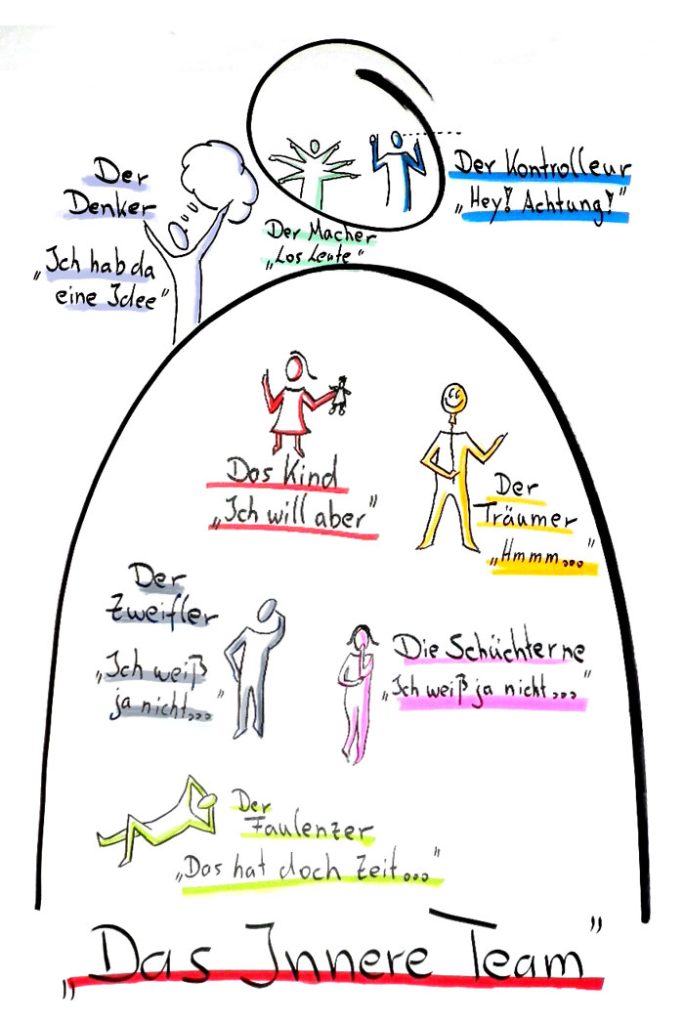 Der
Denker
„Ich hab da
eine Idee"
Der Macher
„Los Leute"
Der Kontrolleur
„Hey! Achtung!"
Das Kind
„Ich will aber"
Der
Träumer
„Hmmm..."
Der
Zweifler
„Ich weiß
ja nicht..."
Die Schüchterne
„Ich weiß ja nicht..."
Der
Faulenzer
„Das hat doch Zeit..."
„Das Innere Team"